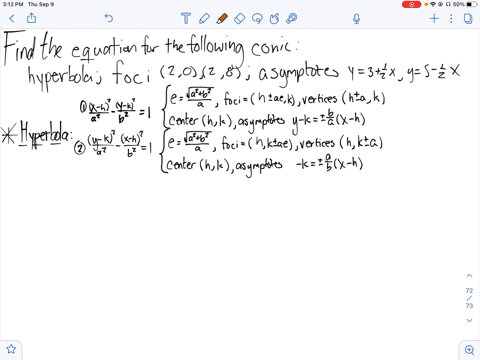 3:12 PM Thu Sep 9
50%
Find the equation for the following conic:
hyperbola; foci (2,0),(2,8); asymptotes y=3+½x, y=5-½x
① (x-h)²/a² - (y-k)²/b² = 1 { e=√(a²+b²)/a, foci=(h±ae,k), vertices (h±a,k)
center (h,k), asymptotes y-k=±b/a(x-h)
* Hyperbola:
② (y-k)²/a² - (x-h)²/b² = 1 { e=√(a²+b²)/a, foci=(h,k±ae), vertices (h,k±a)
center (h,k), asymptotes -k=±a/b(x-h)
72
/
73